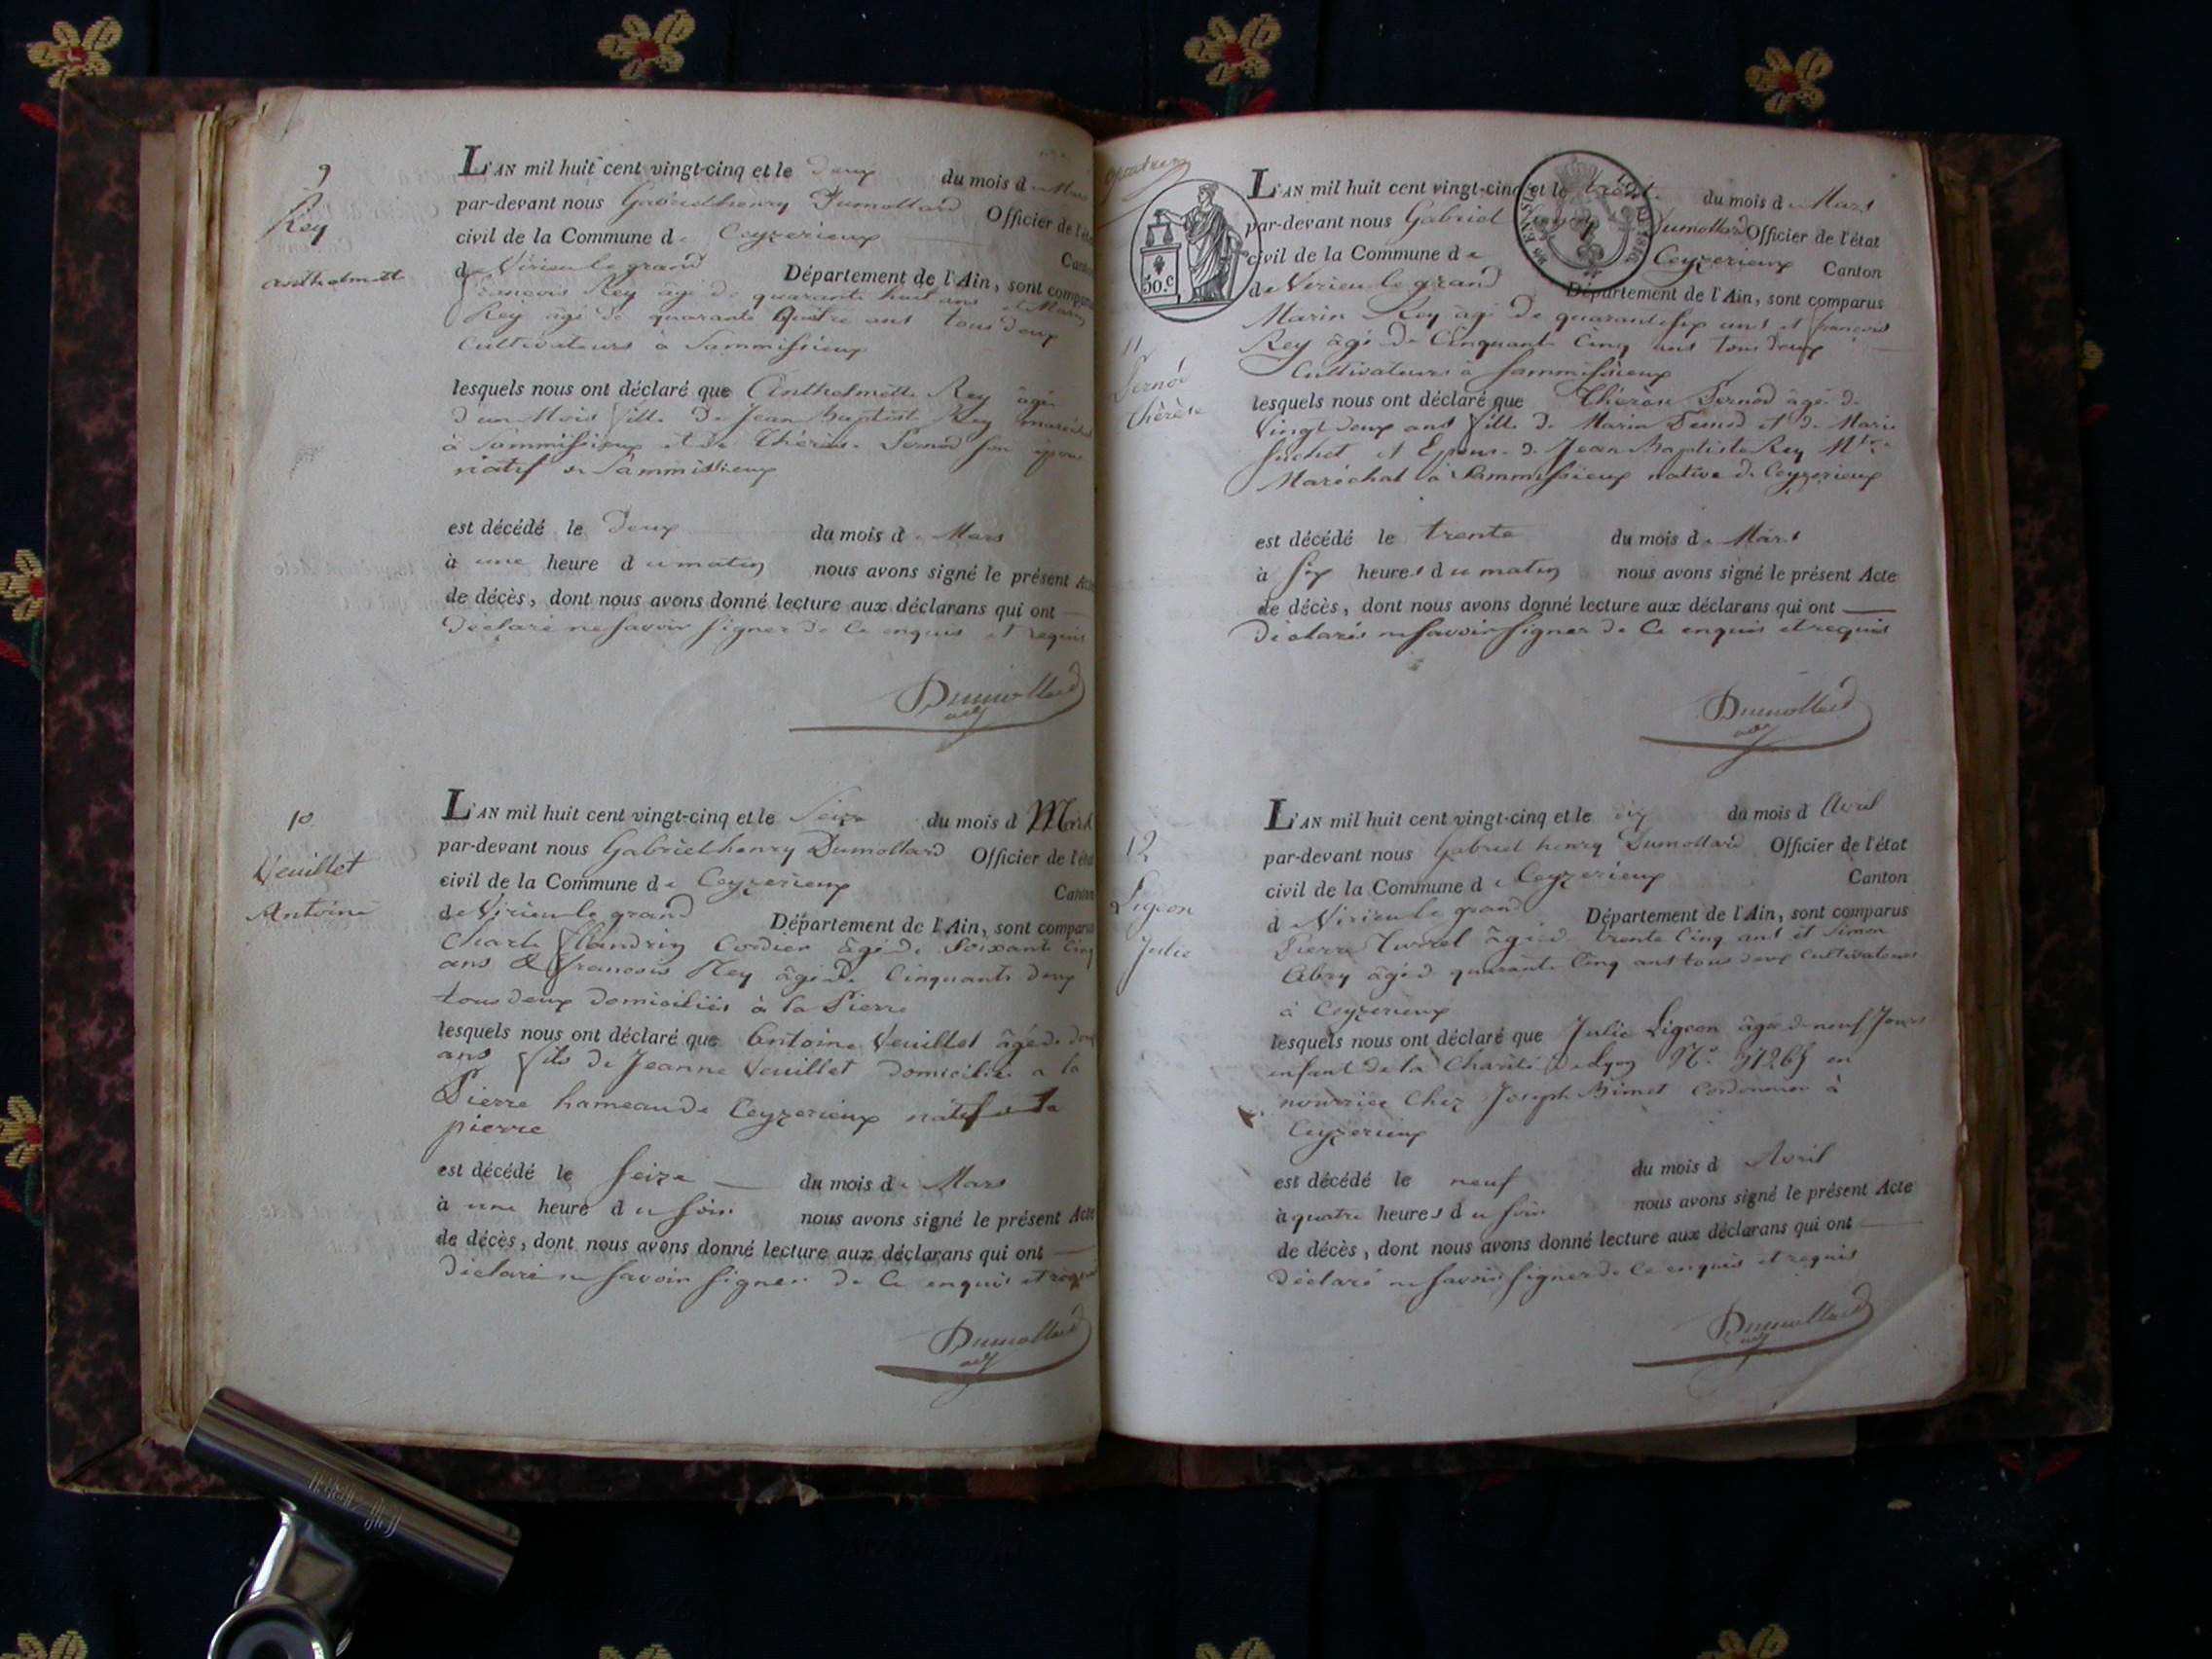 9
Rey
anthelmette
L'AN mil huit cent vingt-cinq et le deux du mois de Mars
par-devant nous Gabriel henry Dumollard Officier de l'état
civil de la Commune de Ceyzerieux Canton
de Virieu le grand Département de l'Ain, sont comparus
françois Rey âgé de quarante huit ans et Marin
Rey âgé de quarante Quatre ans tous deux
Cultivateurs à Sammissieux
lesquels nous ont déclaré que Anthelmette Rey âgée
d'un Mois fille de Jean Baptiste Rey maréchal
à Sammissieux et de Thérèse Pernod son épouse
natif de Sammissieux
est décédé le Deux du mois de Mars
à une heure du matin nous avons signé le présent Acte
de décès, dont nous avons donné lecture aux déclarans qui ont
déclaré ne savoir signer de Ce enquis et requis
Dumollard
adj
10
Veuillet
Antoine
L'AN mil huit cent vingt-cinq et le Seize du mois d Mars
par-devant nous Gabriel henry Dumollard Officier de l'état
civil de la Commune de Ceyzerieux Canton
de Virieu le grand Département de l'Ain, sont comparus
Charle flandrin Cordier âgé de Soixante Cinq
ans & françois Rey âgé de Cinquante deux
tous deux domiciliés à la Pierre
lesquels nous ont déclaré que Antoine Veuillet âgé de deux
ans fils de Jeanne Veuillet domicilié a la
Pierre hameau de Ceyzerieux natif de la
pierre
est décédé le Seize du mois de Mars
à une heure du soir nous avons signé le présent Acte
de décès, dont nous avons donné lecture aux déclarans qui ont
déclaré ne savoir signer de Ce enquis et requis
Dumollard
adj
50.c
11
Pernod
thérèse
L'AN mil huit cent vingt-cinq et le trente du mois de Mars
par-devant nous Gabriel henry Dumollard Officier de l'état
civil de la Commune de Ceyzerieux Canton
de Virieu le grand Département de l'Ain, sont comparus
Marin Rey âgé de quarante six ans et françois
Rey âgé de Cinquante Cinq ans tous deux
Cultivateurs à Sammissieux
lesquels nous ont déclaré que Thérèse Pernod âgé de
Vingt deux ans fille de Marin Pernod et de Marie
Suchet et Epouse de Jean Baptiste Rey
Maréchal à Sammissieux native de Ceyzerieux
est décédé le trente du mois de Mars
à six heures du matin nous avons signé le présent Acte
de décès, dont nous avons donné lecture aux déclarans qui ont
déclarés ne savoir signer de Ce enquis et requis
Dumollard
adj
12
Ligeon
Julie
L'AN mil huit cent vingt-cinq et le dix du mois d Avril
par-devant nous Gabriel henry Dumollard Officier de l'état
civil de la Commune de Ceyzerieux Canton
d Virieu le grand Département de l'Ain, sont comparus
Pierre Turrel âgé de trente Cinq ans et Simon
Abry âgé d quarante Cinq ans tous deux Cultivateurs
à Ceyzerieux
lesquels nous ont déclaré que Julie Ligeon âgée de neuf Jours
enfant de la Charité de Lyon N.o en
nourrice Chez Joseph Bimet Cordonnier à
Ceyzerieux
est décédé le neuf du mois d Avril
à quatre heures du soir nous avons signé le présent Acte
de décès, dont nous avons donné lecture aux déclarans qui ont
déclaré ne savoir signer de Ce enquis et requis
Dumollard
adj